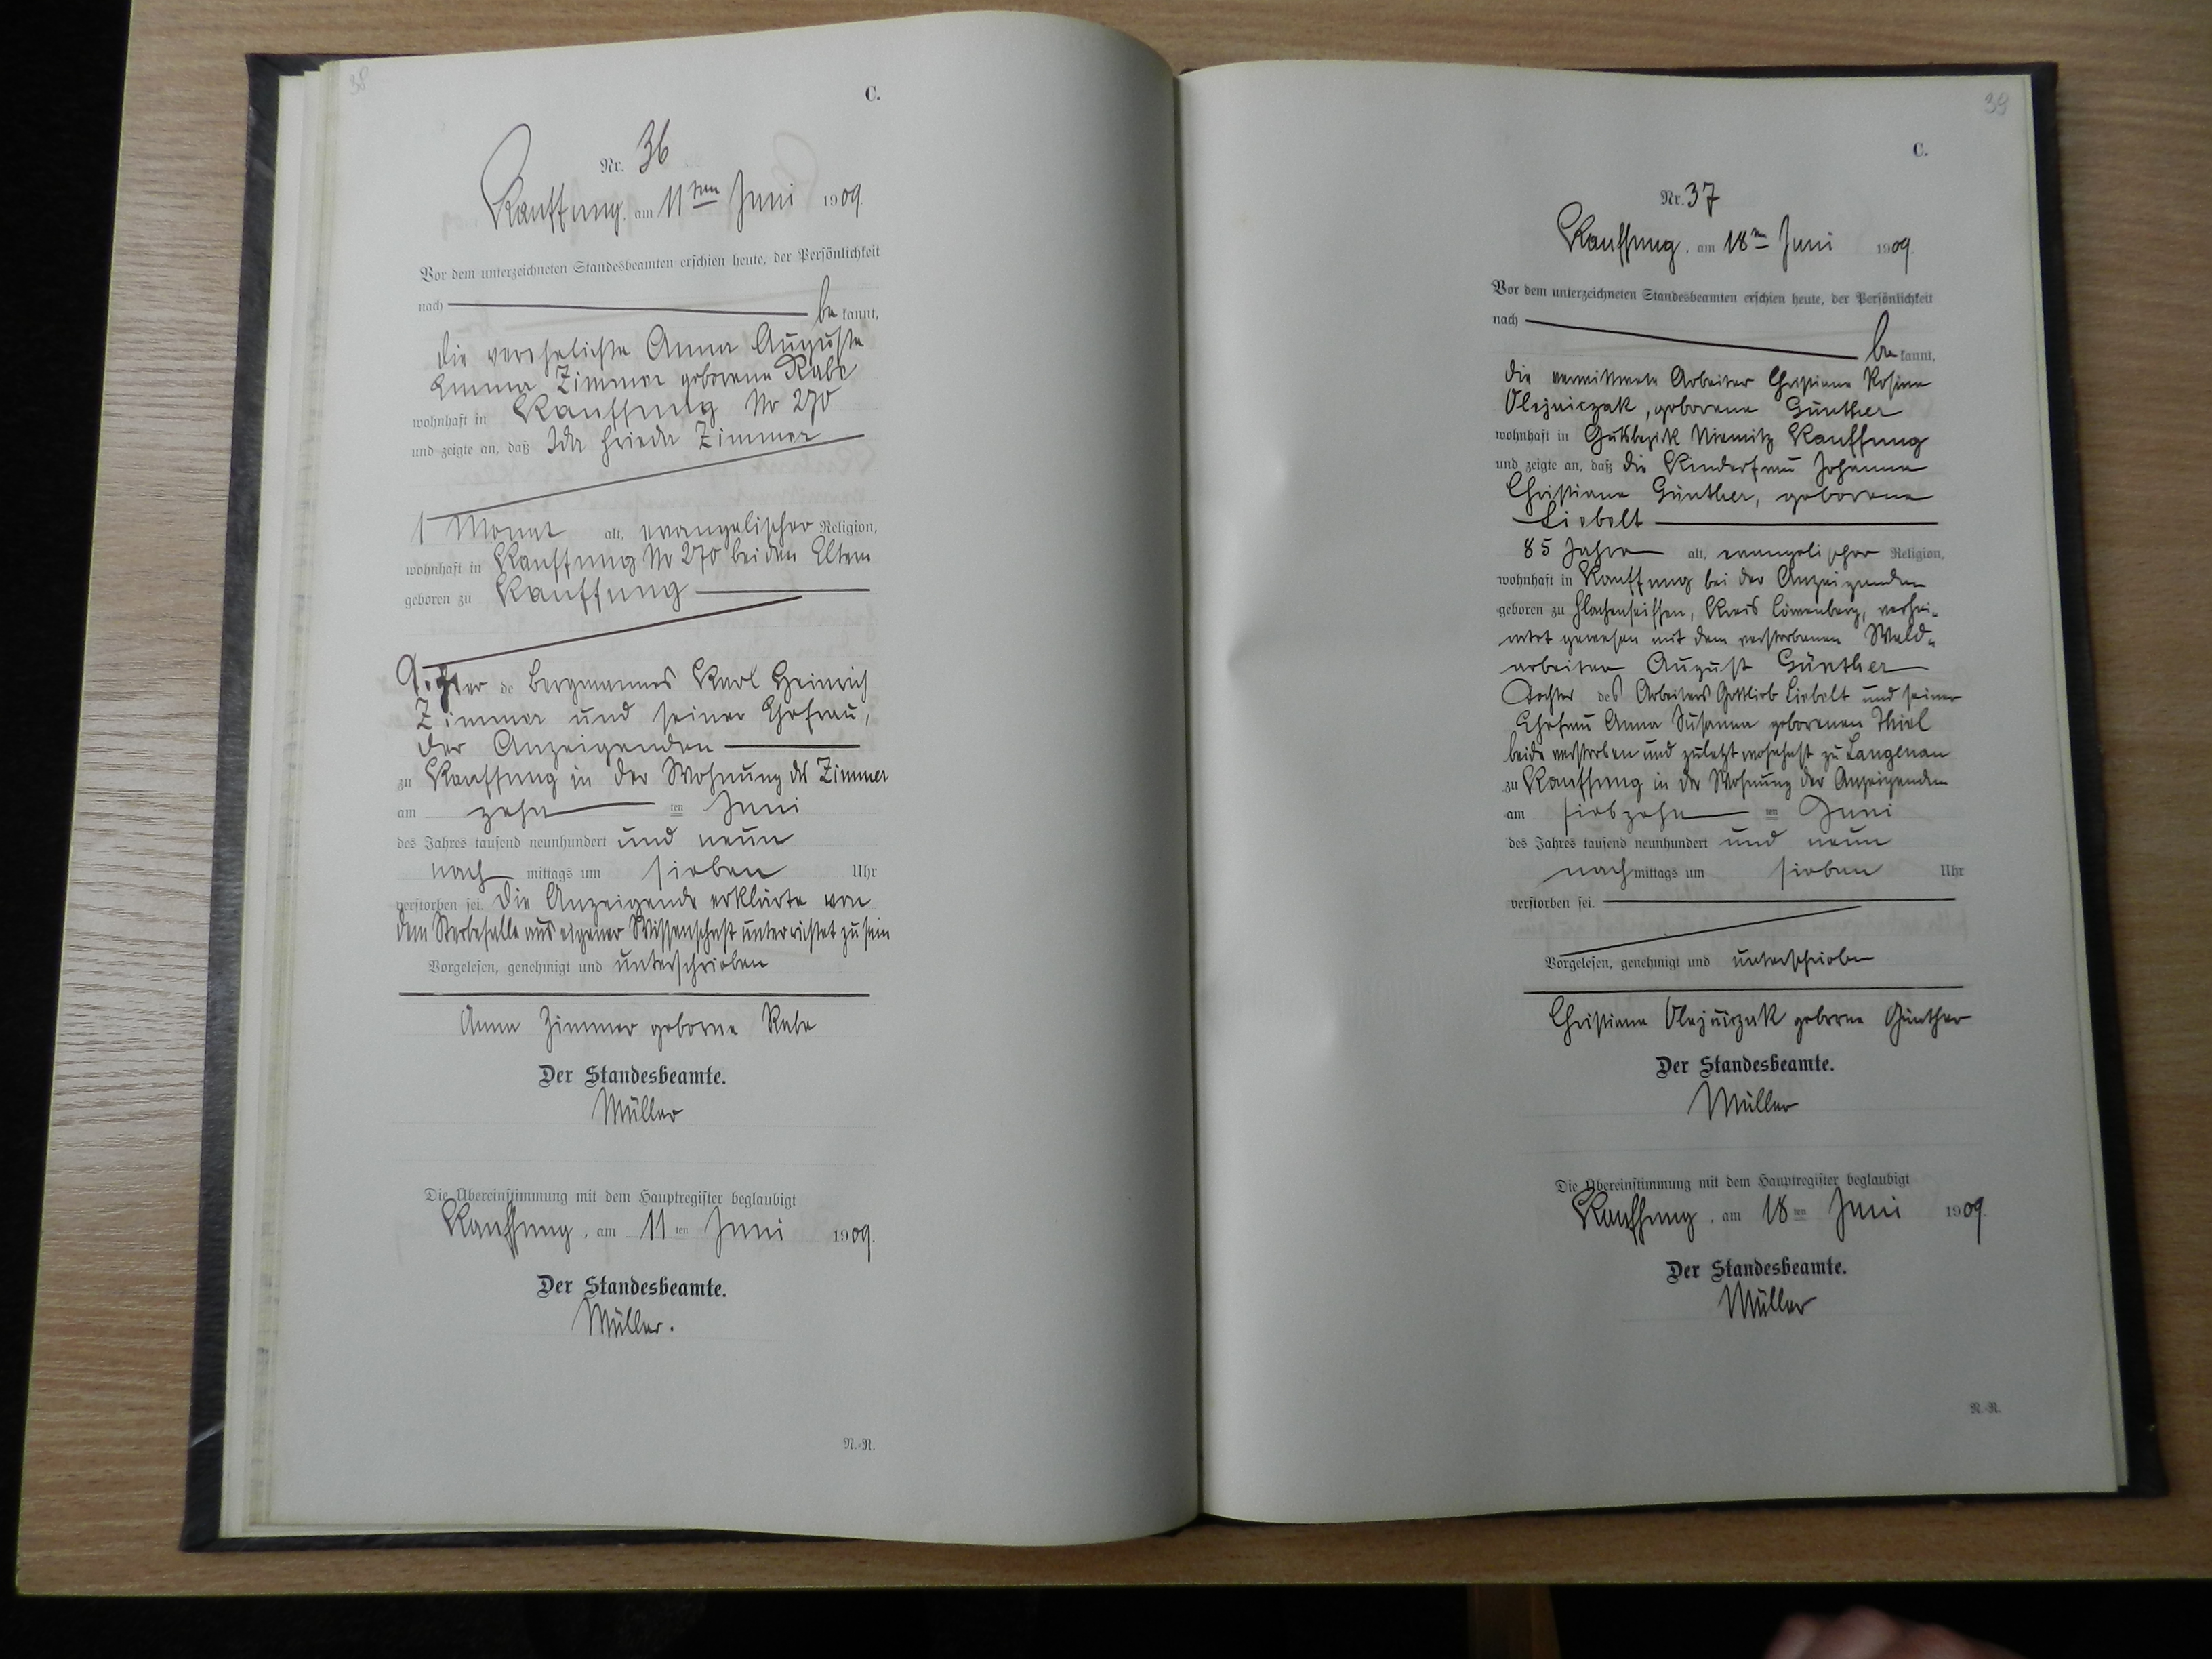 38
C.
Nr. 36
Kauffung, am 11ten Juni 1909.
Vor dem unterzeichneten Standesbeamten erschien heute, der Persönlichkeit
nach be kannt,
die verehelichte Anna Auguste
Emma Zimmer geborene Rabe
wohnhaft in Kauffung Nr 270
und zeigte an, daß Ida Frieda Zimmer
1 Monat alt, evangelischer Religion,
wohnhaft in Kauffung Nr 270 bei den Eltern
geboren zu Kauffung
Tochter des Bergmannes Karl Heinrich
Zimmer und seiner Ehefrau,
der Anzeigenden
zu Kauffung in der Wohnung des Zimmer
am zehn ten Juni
des Jahres tausend neunhundert und neun
nach mittags um sieben Uhr
verstorben sei. Die Anzeigende erklärte von
dem Sterbefalle aus eigener Wissenschaft unterrichtet zu sein
Vorgelesen, genehmigt und unterschrieben
Anna Zimmer geborne Rabe
Der Standesbeamte.
Müller
Die Übereinstimmung mit dem Hauptregister beglaubigt
Kauffung, am 11 ten Juni 1909.
Der Standesbeamte.
Müller.
N.-R.
39
C.
Nr. 37
Kauffung, am 18ten Juni 1909.
Vor dem unterzeichneten Standesbeamten erschien heute, der Persönlichkeit
nach be kannt,
die verwittwete Arbeiter Christiane Rosine
Olejniczak, geborene Günther
wohnhaft in Gutsbezirk Niemitz Kauffung
und zeigte an, daß die Kinderfrau Johanna
Christiane Günther, geborene
Liebelt
85 Jahre alt, evangelischer Religion,
wohnhaft in Kauffung bei der Anzeigenden
geboren zu Flachenseiffen, Kreis Löwenberg, verhei-
ratet gewesen mit dem verstorbenen Wald-
arbeiter August Günther
Tochter des Arbeiters Gottlieb Liebelt und seiner
Ehefrau Anna Susanna geborenen Thiel
beide verstorben und zuletzt wohnhaft zu Langenau
zu Kauffung in der Wohnung der Anzeigenden
am siebzehn ten Juni
des Jahres tausend neunhundert und neun
nach mittags um sieben Uhr
verstorben sei.
Vorgelesen, genehmigt und unterschrieben
Christiane Olejniczak geborne Günther
Der Standesbeamte.
Müller
Die Übereinstimmung mit dem Hauptregister beglaubigt
Kauffung, am 18 ten Juni 1909.
Der Standesbeamte.
Müller
N.-R.